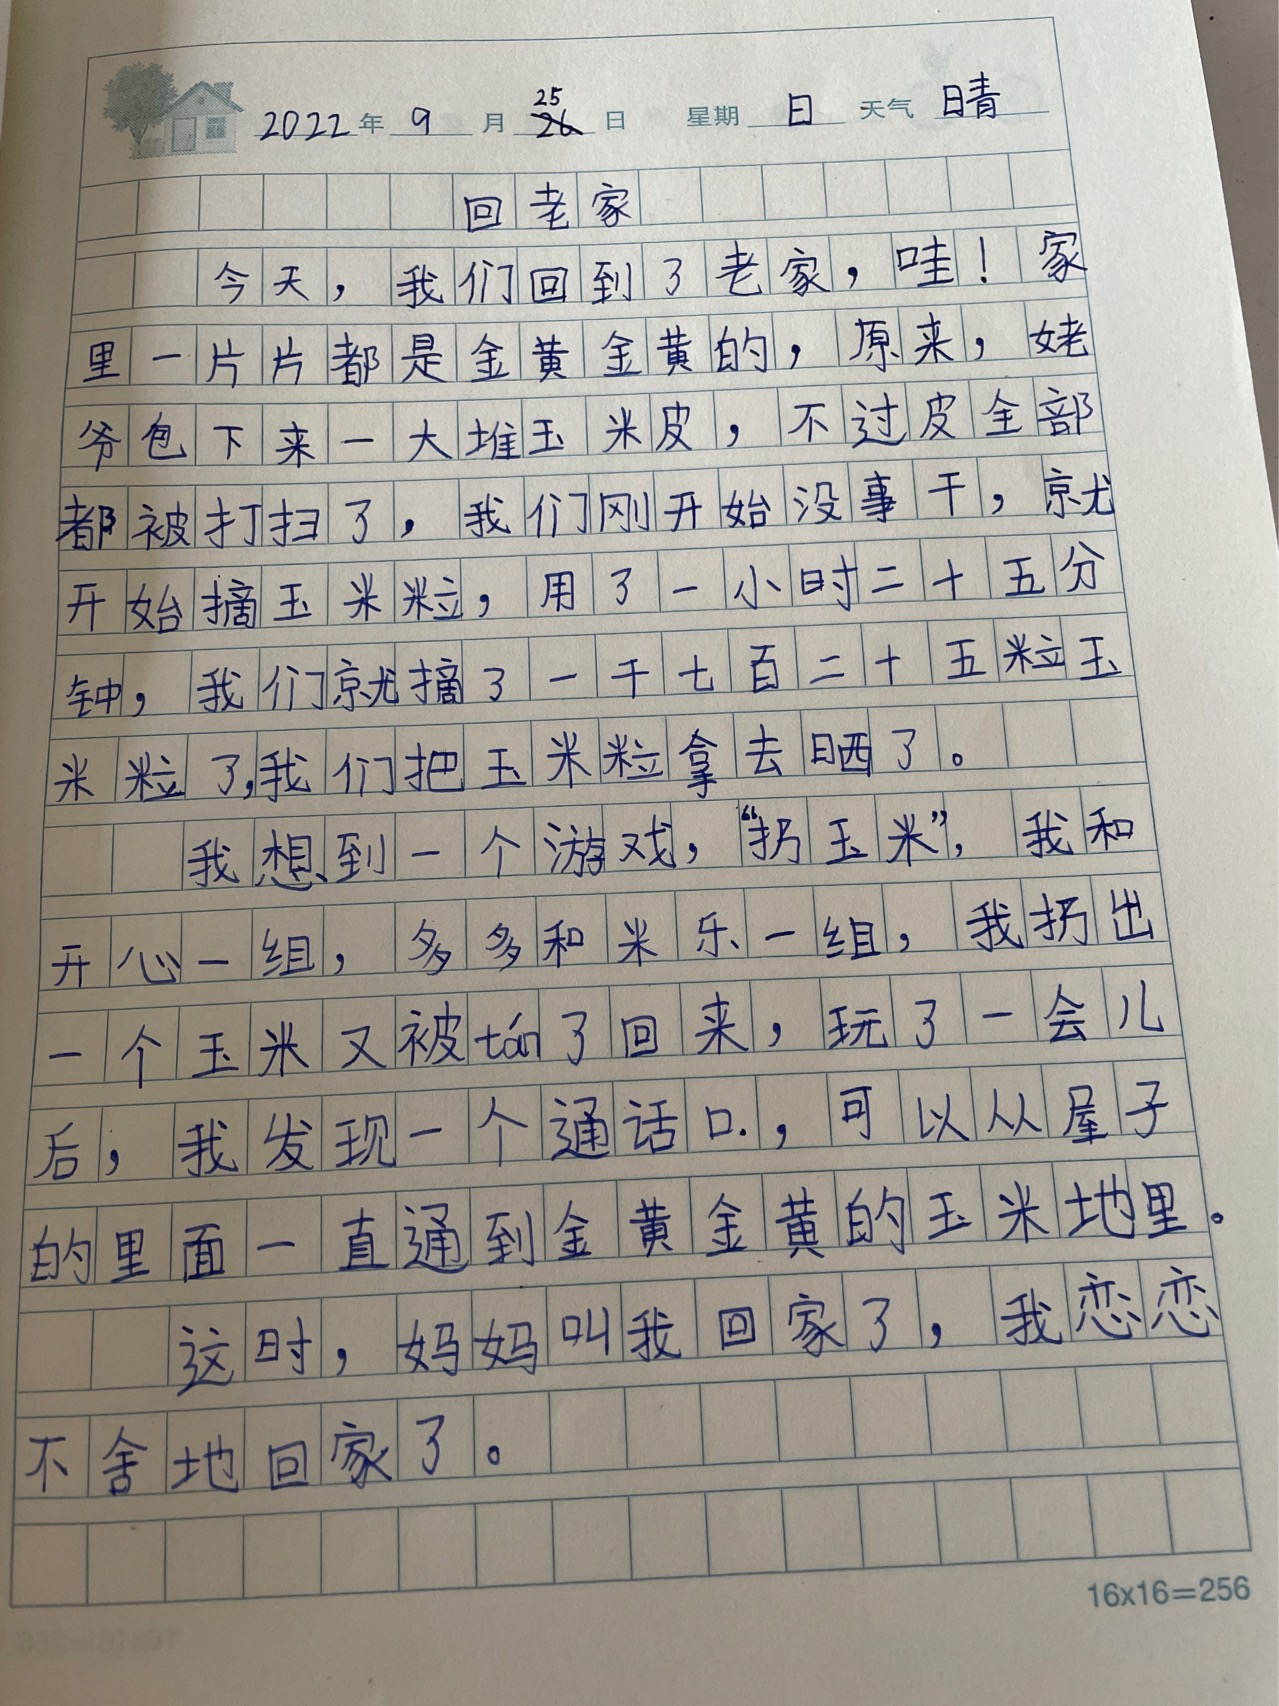 2022年 9 月 25 26 日 星期 日 天气 晴
回老家
今天，我们回到了老家，哇！家
里一片片都是金黄金黄的，原来，姥
爷包下来一大堆玉米皮，不过皮全部
都被打扫了，我们刚开始没事干，就
开始摘玉米粒，用了一小时二十五分
钟，我们就摘了一千七百二十五粒玉
米粒了，我们把玉米粒拿去晒了。
我想到一个游戏，“扔玉米”，我和
开心一组，多多和米乐一组，我扔出
一个玉米又被tán了回来，玩了一会儿
后，我发现一个通话口.，可以从屋子
的里面一直通到金黄金黄的玉米地里。
这时，妈妈叫我回家了，我恋恋
不舍地回家了。
16x16=256